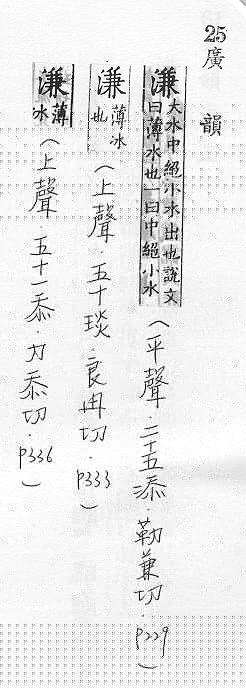 25廣韻
濂 大水中絕小水出也說文曰薄水也一曰中絕小水 (平聲.二十五添.勒兼切.P229)
濂 薄冰也 (上聲.五十琰.良冉切.P333)
濂 薄冰 (上聲.五十一忝.力忝切.P336)